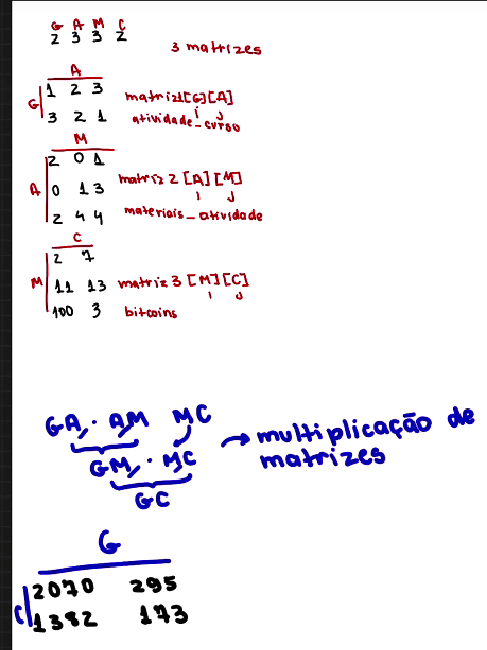 G A M C
2 3 3 2
3 matrizes
A
G
1 2 3
3 2 1
matriz1[G][A]
i j
atividade_curso
M
A
2 0 1
0 1 3
2 4 4
matriz 2 [A][M]
i j
materiais_atividade
C
M
2 7
11 13
100 3
matriz 3 [M][C]
i j
bitcoins
GA · AM MC
GM · MC
GC
→ multiplicação de
matrizes
G
C
2070 295
1382 173